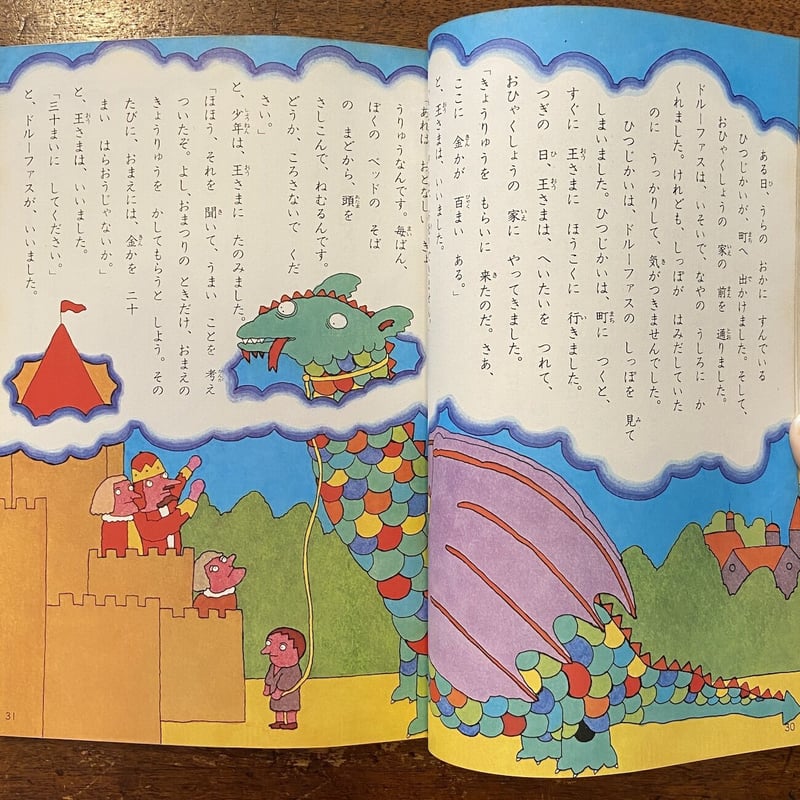 ある日、うらの おかに すんでいる
ひつじかいが、町へ 出かけました。そして、
おひゃくしょうの 家の 前を 通りました。
ドルーファスは、いそいで、なやの うしろに か
くれました。けれども、しっぽが はみだしていた
のに うっかりして、気がつきませんでした。
ひつじかいは、ドルーファスの しっぽを 見て
しまいました。ひつじかいは、町に つくと、
すぐに 王さまに ほうこくに 行きました。
つぎの 日、王さまは、へいたいを つれて、
おひゃくしょうの 家に やってきました。
「きょうりゅうを もらいに 来たのだ。さあ、
ここに 金かが 百まい ある。」
と、王さまは、いいました。
30
「あれは おとなしい きょ
うりゅうなんです。毎ばん、
ぼくの ベッドの そば
の まどから、頭を
さしこんで、ねむるんです。
どうか、ころさないで くだ
さい。」
と、少年は、王さまに たのみました。
「ほほう、それを 聞いて、うまい ことを 考え
ついたぞ。よし、おまつりの ときだけ、おまえの
きょうりゅうを かしてもらうと しよう。その
たびに、おまえには、金かを 二十
まい はらおうじゃないか。」
と、王さまは、いいました。
「三十まいに してください。」
と、ドルーファスが、いいました。
31